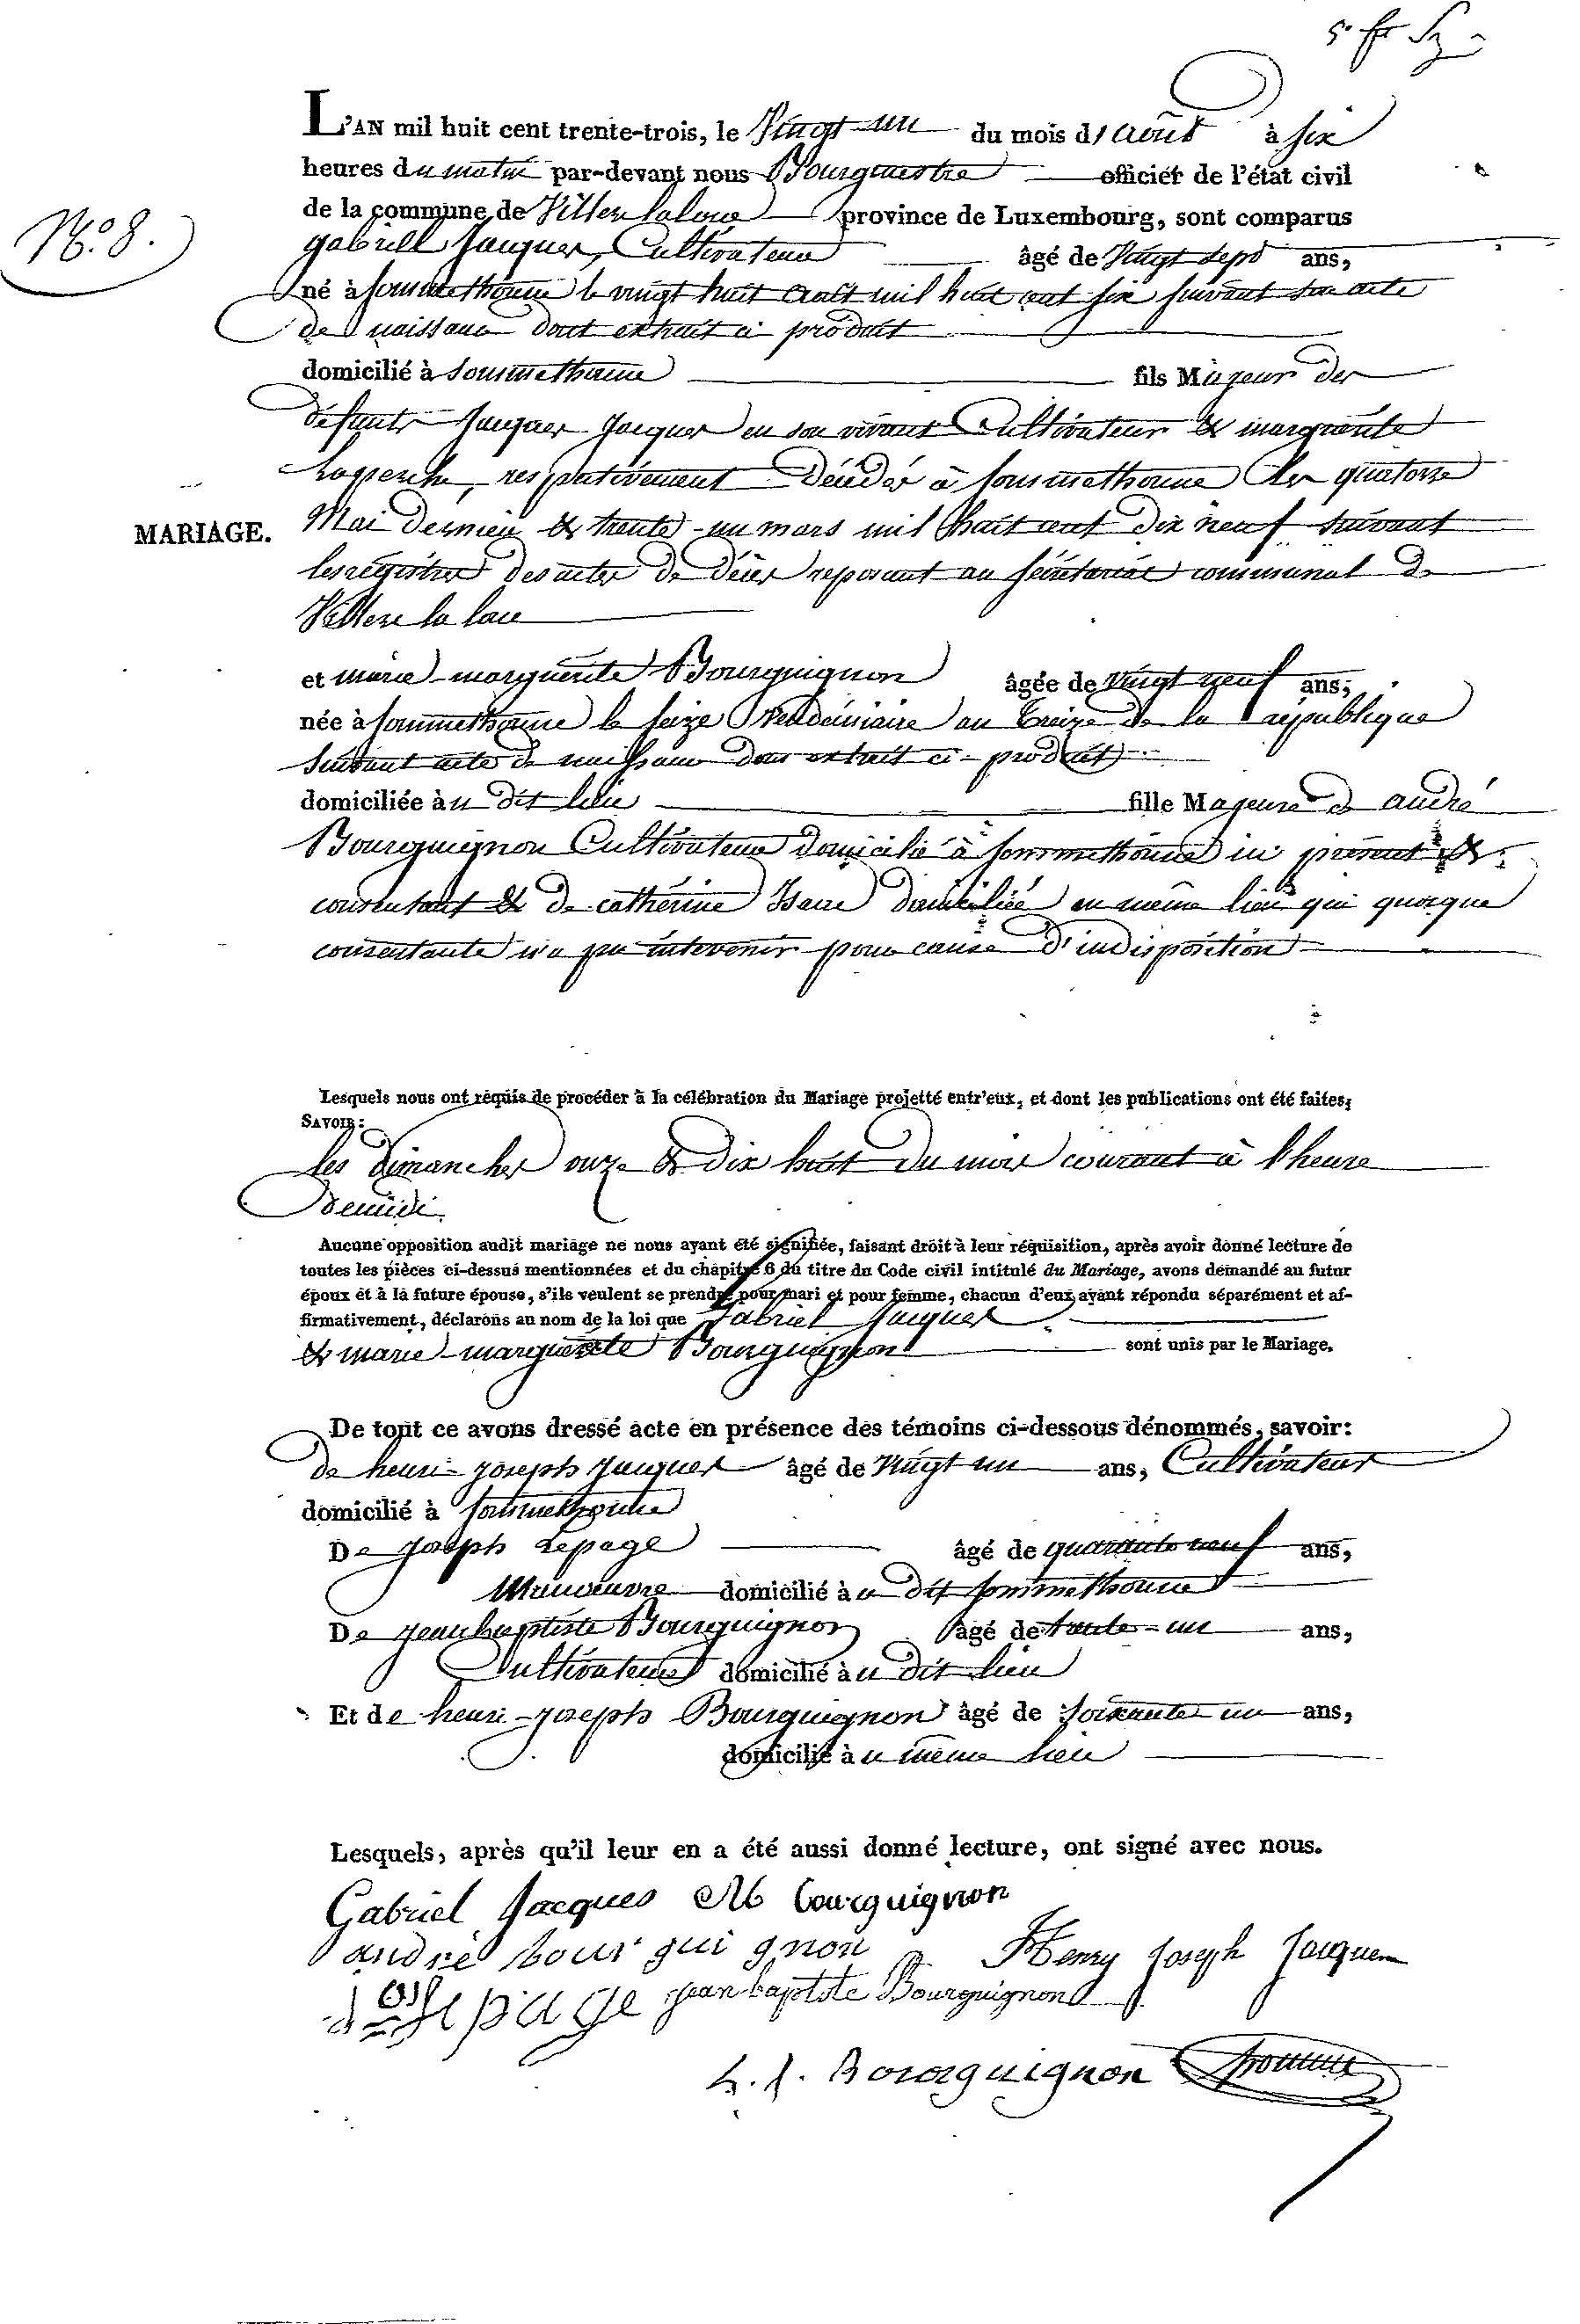 L'AN mil huit cent trente-trois, le Vingt-un du mois d'août à six
heures du matin par-devant nous Bourgmestre officier de l'état civil
N.º 8.
de la commune de Villers la loue province de Luxembourg, sont comparus
gabriel Jacques, Cultivateur âgé de Vingt sept ans,
né à sommethonne le vingt huit août mil huit cent six suivant son acte
de naissance dont extrait ci produit
domicilié à sommethonne fils Majeur des
défunts Jacques Jacques en son vivant Cultivateur & marguerite
respectivement décédés à sommethonne les quatorze
MARIAGE.
Mai dernier & trente-un mars mil huit cent dix neuf suivant
les régistres des actes de décès reposant au sécrétariat communal de
Villers la loue
et marie-marguerite Bourguignon âgée de vingt neuf ans,
née à sommethonne le seize Vendémiaire an treize de la république
suivant acte de naissance dont extrait ci-produit
domiciliée au dit lieu fille Majeure de andré
Bourguignon Cultivateur domicilié à sommethonne ici présent &
consentant & de cathérine Isaie domiciliée au même lieu qui quoique
consentante n'a pu intevenir pour cause d'indisposition
Lesquels nous ont requis de procéder à la célébration du Mariage projetté entr'eux, et dont les publications ont été faites;
SAVOIR:
les dimanches onze & dix huit du mois courant à l'heure
de midi.
Aucune opposition audit mariage ne nous ayant été signifiée, faisant droit à leur réquisition, après avoir donné lecture de
toutes les pièces ci-dessus mentionnées et du chapitre 6 du titre du Code civil intitulé du Mariage, avons demandé au futur
époux et à la future épouse, s'ils veulent se prendre pour mari et pour femme, chacun d'eux ayant répondu séparément et af-
firmativement, déclarons au nom de la loi que Gabriel Jacques
& marie-marguerite Bourguignon sont unis par le Mariage.
De tout ce avons dressé acte en présence des témoins ci-dessous dénommés, savoir:
de henri-joseph Jacques âgé de Vingt un ans, Cultivateur
domicilié à sommethonne
De joseph Lepage âgé de quarante neuf ans,
Manœuvre domicilié au dit sommethonne
De jean baptiste Bourguignon âgé de trente-un ans,
Cultivateur domicilié au dit lieu
Et de henri-joseph Bourguignon âgé de soixante un ans,
domicilié au même lieu
Lesquels, après qu'il leur en a été aussi donné lecture, ont signé avec nous.
Gabriel Jacques M bourguignon
andré bour gui gnon Henry Joseph Jacques
Jos lepage jean baptiste Bourguignon
h. j. Bourguignon